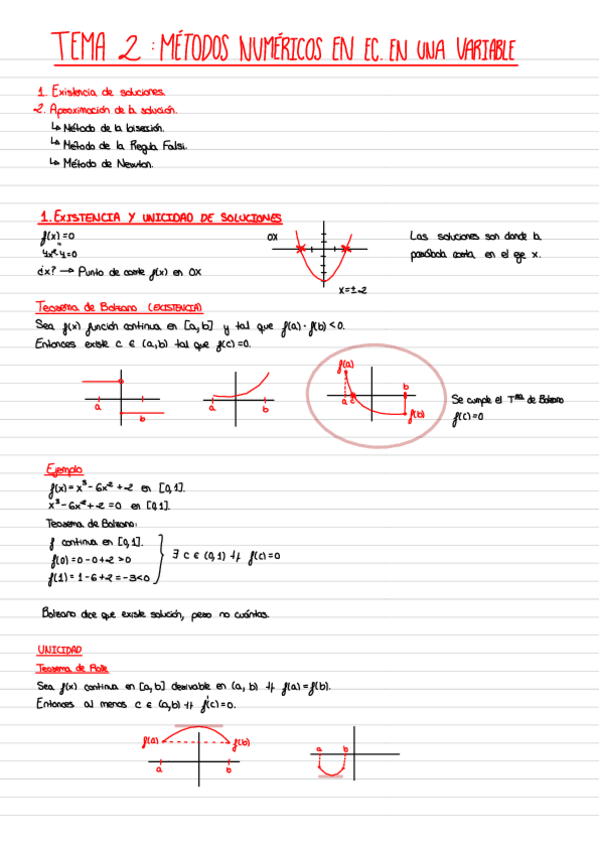 TEMA 2: MÉTODOS NUMÉRICOS EN EC. EN UNA VARIABLE
1. Existencia de soluciones.
2. Aproximación de la solución.
↳ Método de la bisección.
↳ Método de la Regula Falsi.
↳ Método de Newton.
1. EXISTENCIA Y UNICIDAD DE SOLUCIONES
f(x)=0
4x²-4=0
¿x? → Punto de corte f(x) en OX
OX
x=±2
Las soluciones son donde la
parábola corta en el eje x.
Teorema de Bolzano (EXISTENCIA)
Sea f(x) función continua en [a,b] y tal que f(a)·f(b)<0.
Entonces existe c ∈ (a,b) tal que f(c)=0.
a b
a b
f(a) a c b f(b)
Se cumple el Tma de Bolzano
f(c)=0
Ejemplo
f(x)=x³-6x²+2 en [0,1].
x³-6x²+2=0 en [0,1].
Teorema de Bolzano:
f continua en [0,1].
f(0)=0-0+2>0
f(1)=1-6+2=-3<0
∃ c ∈ (0,1) t/ f(c)=0
Bolzano dice que existe solución, pero no cuántas.
UNICIDAD
Teorema de Rolle
Sea f(x) continua en [a,b] derivable en (a,b) t/ f(a)=f(b).
Entonces al menos c ∈ (a,b) t/ f'(c)=0.
f(a) f(b)
a b
a b